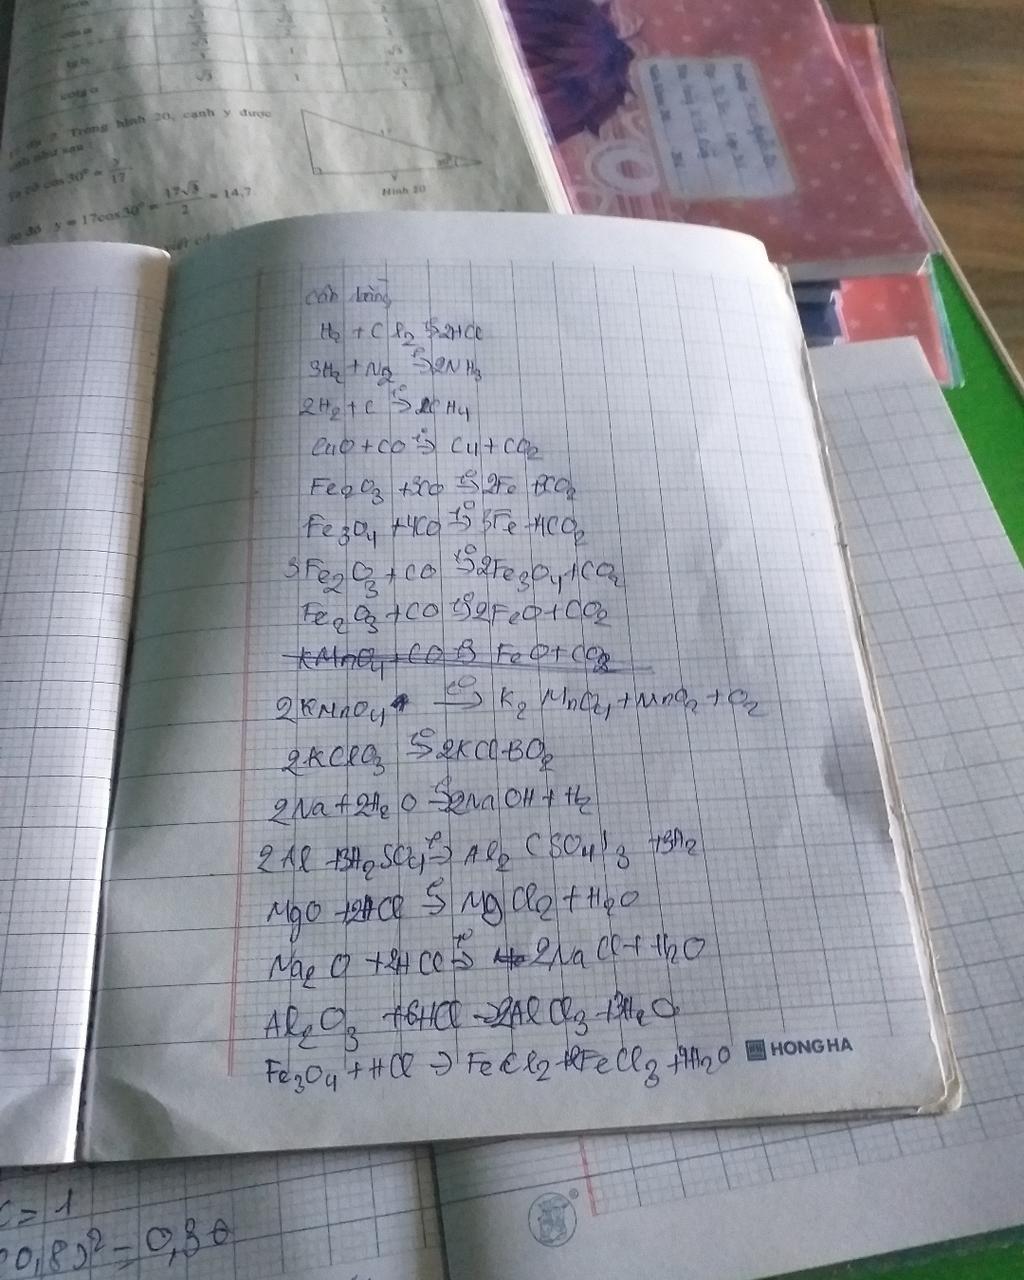 cotg α
√3
1
Trong hình 20, cạnh y được
cos30° = y/17
y = 17cos30° = 17√3/2 ≈ 14,7
Hình 20
Cân bằng
H2 + Cl2 t°→ 2HCl
3H2 + N2 t°→ 2NH3
2H2 + C t°→ CH4
CuO + CO t°→ Cu + CO2
Fe2O3 + 3CO t°→ 2Fe + 3CO2
Fe3O4 + 4CO t°→ 3Fe + 4CO2
3Fe2O3 + CO t°→ 2Fe3O4 + CO2
Fe2O3 + CO t°→ 2FeO + CO2
KMnO4 + CO → FeO + CO2
2KMnO4 t°→ K2MnO4 + MnO2 + O2
2KClO3 t°→ 2KCl + 3O2
2Na + 2H2O t°→ 2NaOH + H2
2Al + 3H2SO4 t°→ Al2(SO4)3 + 3H2
MgO + 2HCl t°→ MgCl2 + H2O
Na2O + 2HCl t°→ 2NaCl + H2O
Al2O3 + 6HCl → 2AlCl3 + 3H2O
Fe3O4 + HCl → FeCl2 + 2FeCl3 + 4H2O
HONG HA
= 1
0,8)² = 0,36